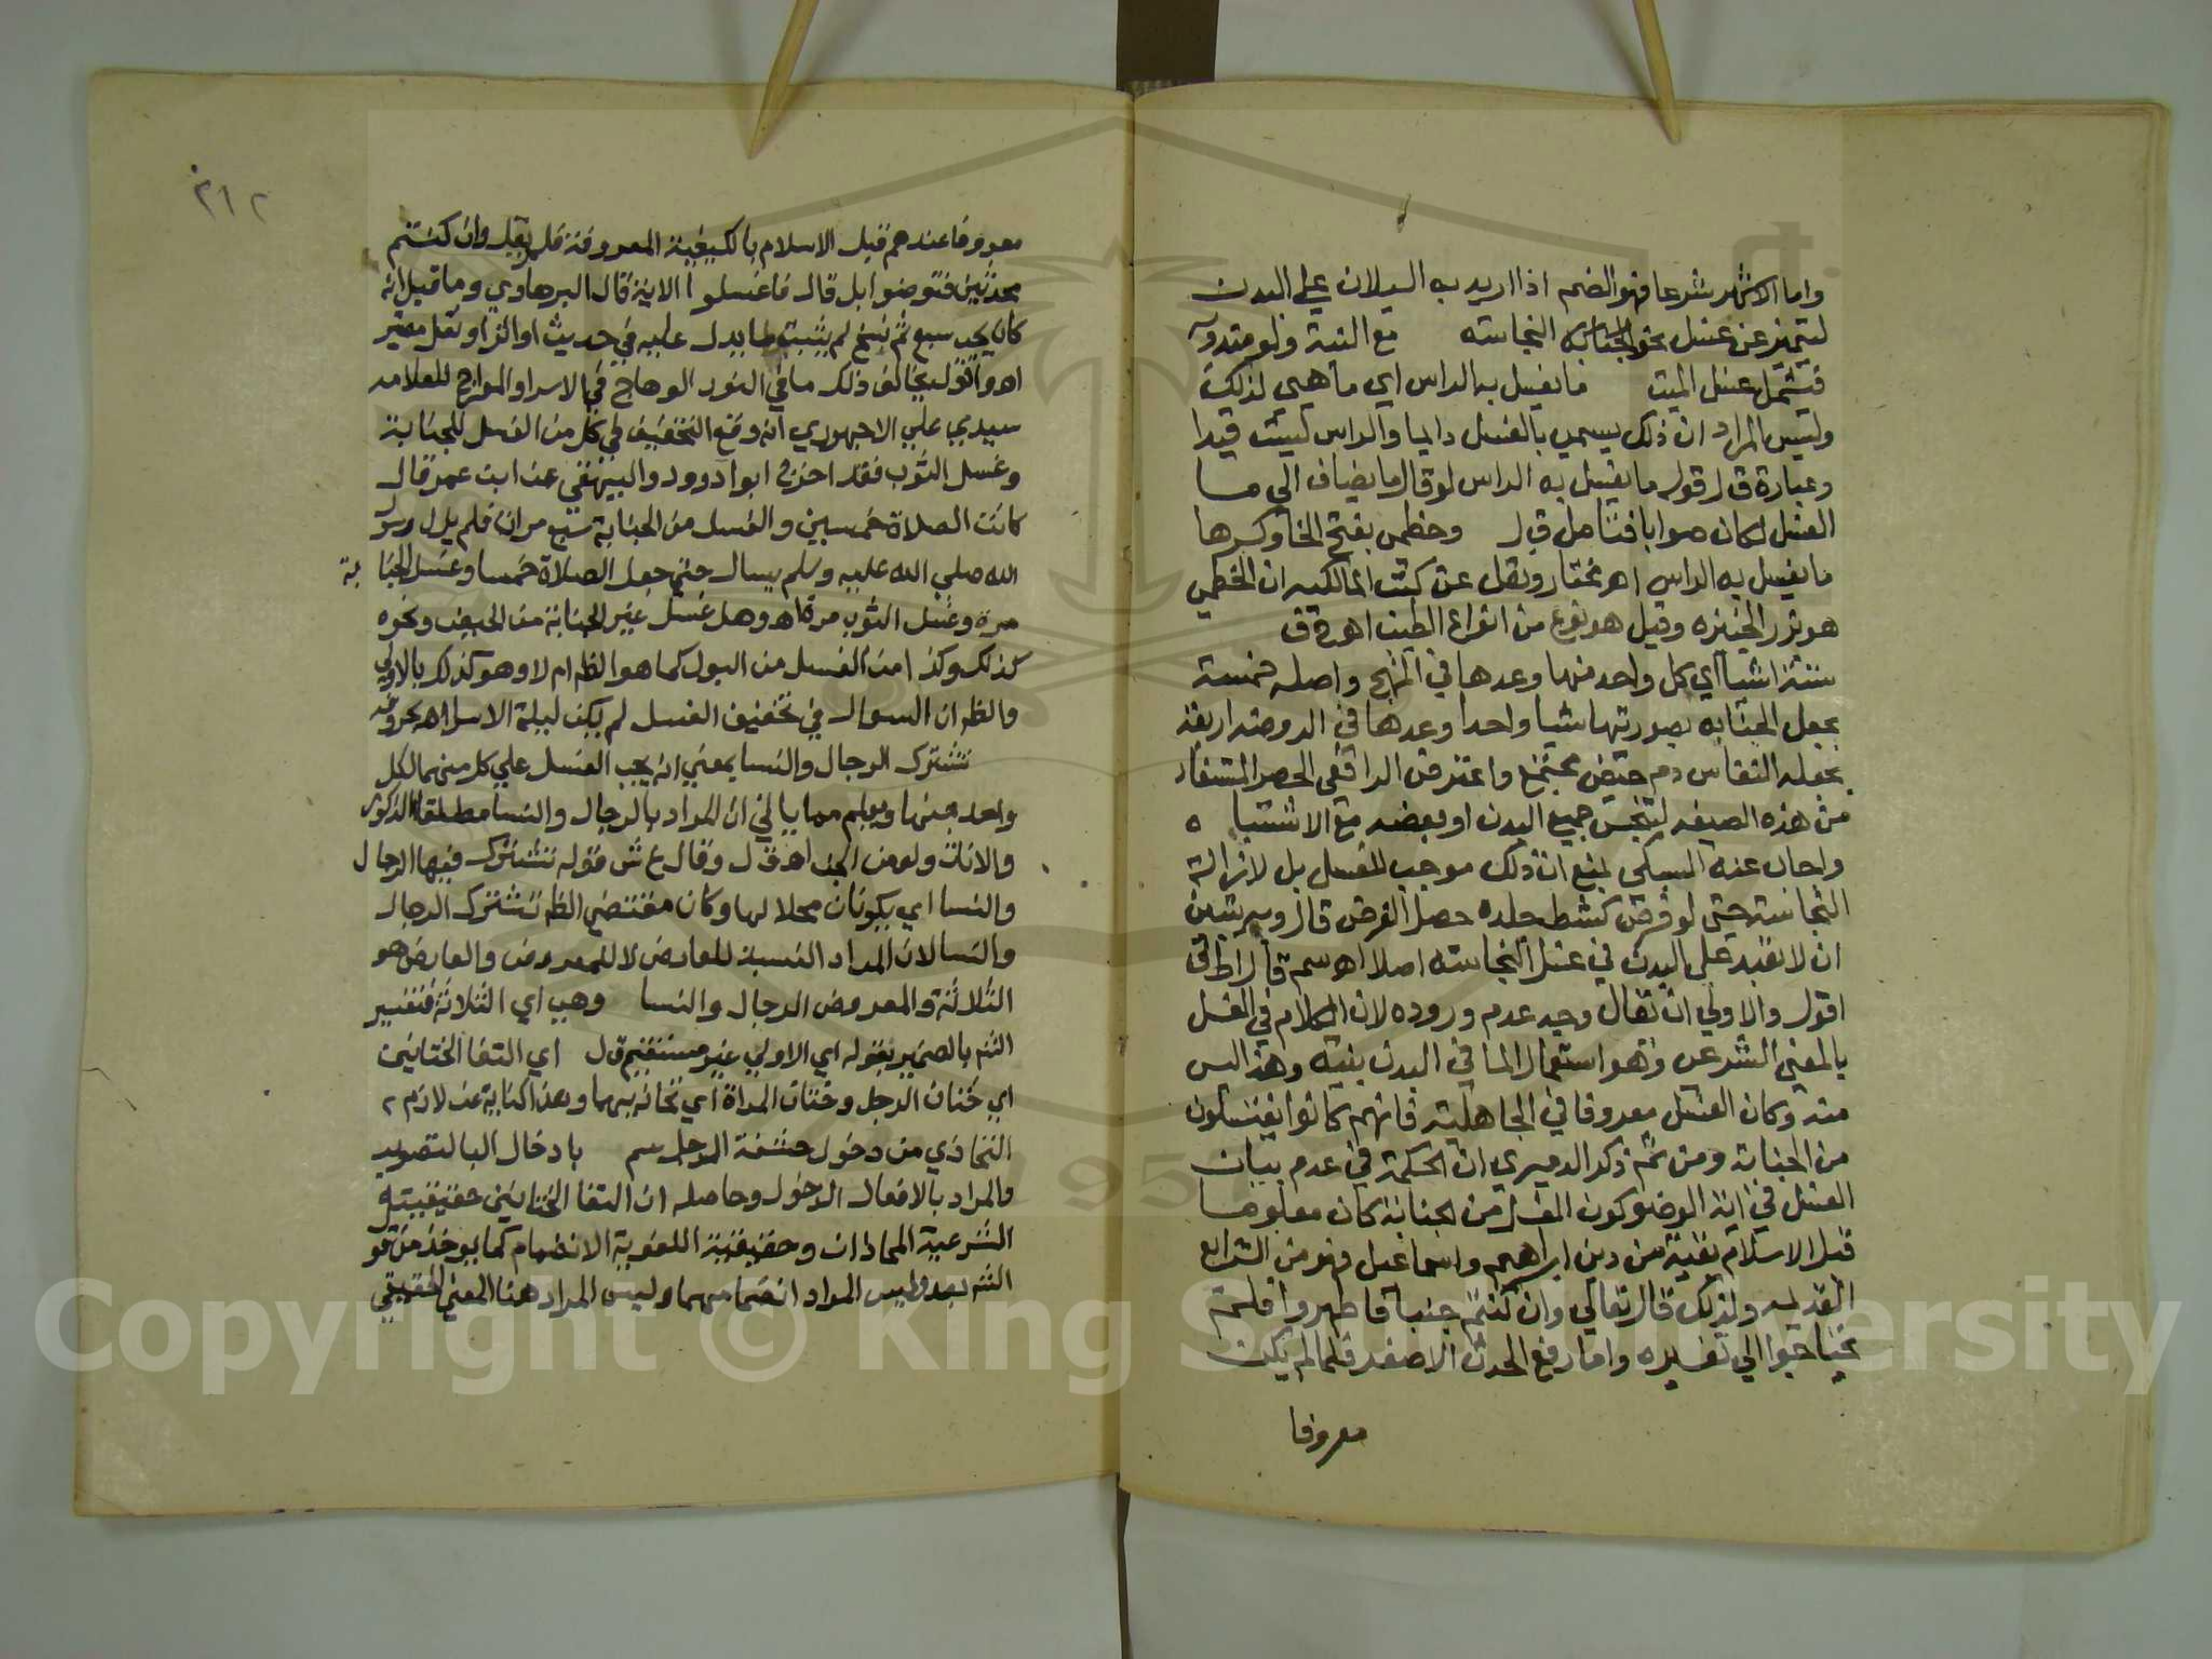 واما الاشهر شرعا فهو الضم اذا اريد به السيلان علي البدن
ليتميز عن غسل نحو النجاسه مع النية ولو مندوبه
فتشمل غسل الميت ما يغسل به الراس اي ما هيي لذلك
وليس المراد ان ذلك يسمي بالغسل دايما والراس ليست قيدا
وعبارة ق ل قوله ما يغسل به الراس لو قال ما يضاف الي ما
الغسل لكان صوابا فتامل ق ل وخطمي بفتح الخا وكسرها
ما يغسل به الراس اهـ مختار ونقل عن كتب المالكيه ان الخطمي
هو بزر الخبيزه وقيل هو نوع من انواع الطين اهـ
ستة اشيا اي كل واحد منها وعدها في المنهج واصله خمسة
بجعل الجنابه بصورتيها شيا واحدا وعدها في الروضه اربعه
بجعله النفاس دم حيض مجتمع واعترض الرافعي الحصر المستفاد
من هذه الصيغه لتنجس جميع البدن او بعضه مع الاشتباه
واجاب عنه السبكي بمنع ان ذلك موجب للغسل بل لازالة
النجاسة حتي لو فرض كشط جلده حصل الغرض قال وبه يتبين
ان لا يقيد علي البدن في غسل النجاسه اصلا اهـ سم قال اط ف
اقول والاولي ان يقال وجه عدم وروده لان الكلام في الغسل
بالمعني الشرعي وهو استعمال الما في البدن بنيه وهذا ليس
منه وكان الغسل معروفا في الجاهليه فانهم كانوا يغتسلون
من الجنابة ومن ثم ذكر الدميري ان الحكمة في عدم بيان
الغسل في اية الوضو كون الغسل من الجنابة كان معلوما
قبل الاسلام بقية من دين ابراهيم واسماعيل فهو من الشرايع
القديمه ولذلك قال تعالي وان كنتم جنبا فاطهروا فلم
يحتاجوا الي تفسيره واما رفع الحدث الاصغر فلما لم يكن
معروفا
٢١٢
معروفا عندهم قبل الاسلام بالكيفية المعروفة فلم يقل وان كنتم
محدثين فتوضوا بل قال فاغسلوا الاية قال البرماوي وما قيل انه
كان يجب سبع ثم نسخ لم يثبت ما يدل عليه في حديث او اثر او نقل معتبر
اهـ واقول يخالف ذلك ما في النور الوهاج في الاسرا والمعراج للعلامه
سيدي علي الاجهوري انه وقع التخفيف في كل من الغسل للجنابة
وغسل الثوب فقد اخرج ابوا داوود والبيهقي عن ابن عمر قال
كانت الصلاة خمسين والغسل من الجنابة سبع مرات فلم يزل رسول
الله صلي الله عليه وسلم يسال حتي جعل الصلاة خمسا وغسل الجنابة
مرة وغسل الثوب مرة اهـ وهل غسل غير الجنابة من الحيض ونحوه
كذلك وكذا من الغسل من البول كما هو الظم ام لا وهو كذلك بالاولي
والظم ان السوال في تخفيف الغسل لم يكن ليلة الاسرا اهـ بحروفه
تشترك الرجال والنسا بمعني انه يجب الغسل علي كل منهما لكل
واحد منها ويعلم مما ياتي ان المراد بالرجال والنسا مطلقا الذكور
والاناث ولو من الجن اهـ ق ل وقال ع ش قوله تشترك فيها الرجال
والنسا اي يكونان محلا لها وكان مقتضي الظم تشترك الرجال
والنسا لان المراد النسبة للعارض لا للمعروض والعارض هو
الثلاثة والمعروض الرجال والنسا وهي اي الثلاثة فتفسير
الش بالضمير بقوله اي الاولي غير مستقيم ق ل اي التقا الختانين
اي ختان الرجل وختان المراة اي تحاذيهما وهذا كناية عن لازم
التحاذي من دخول حشفة الرجل سم بادخال البا للتصوير
والمراد بالادخال الدخول وحاصله ان التقا الختانين حقيقيته
الشرعية المحاذاة وحقيقية اللغوية الانضمام كما يوخذ من قو
الش بعد وليس المراد انضمامهما وليس المراد هنا المعني الحقيقي
Copyright © King Saud University
1957